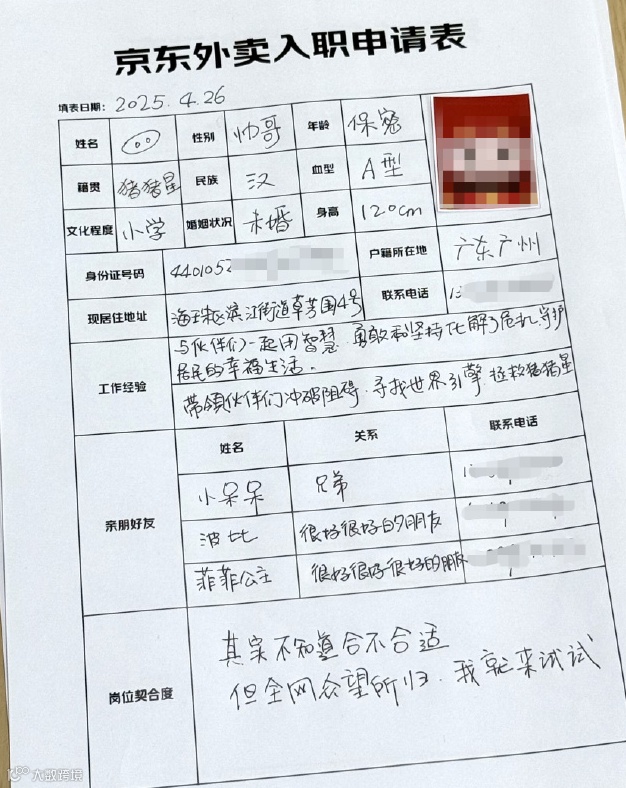 京东外卖入职申请表
填表日期: 2025.4.26
姓名 性别 帅哥 年龄 保密
籍贯 猪猪星 民族 汉 血型 A型
文化程度 小学 婚姻状况 未婚 身高 120cm
身份证号码 4401052 户籍所在地 广东广州
现居住地址 海珠区滨江街道草芳围4号 联系电话 1
与伙伴们一起用智慧、勇敢和坚持化解了危机,守护
居民的幸福生活。
工作经验
带领伙伴们冲破阻碍,寻找世界引擎,拯救猪猪星
姓名 关系 联系电话
小呆呆 兄弟 1
亲朋好友
波比 很好很好的朋友 1
菲菲公主 很好很好很好的朋友 1
其实不知道合不合适
岗位契合度
但全网众望所归,我就来试试
大数跨境